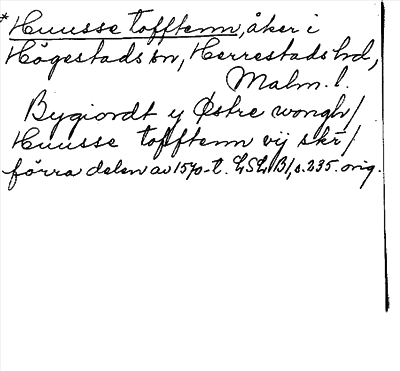 *Huusse tofftenn, åker i
Högestads sn, Herrestads hd,
Malm. l.
Bygiordt y Østre wongh/
Huusse tofftenn vij skr/
förra delen av 1570-t. LSLB1, s. 235. orig.